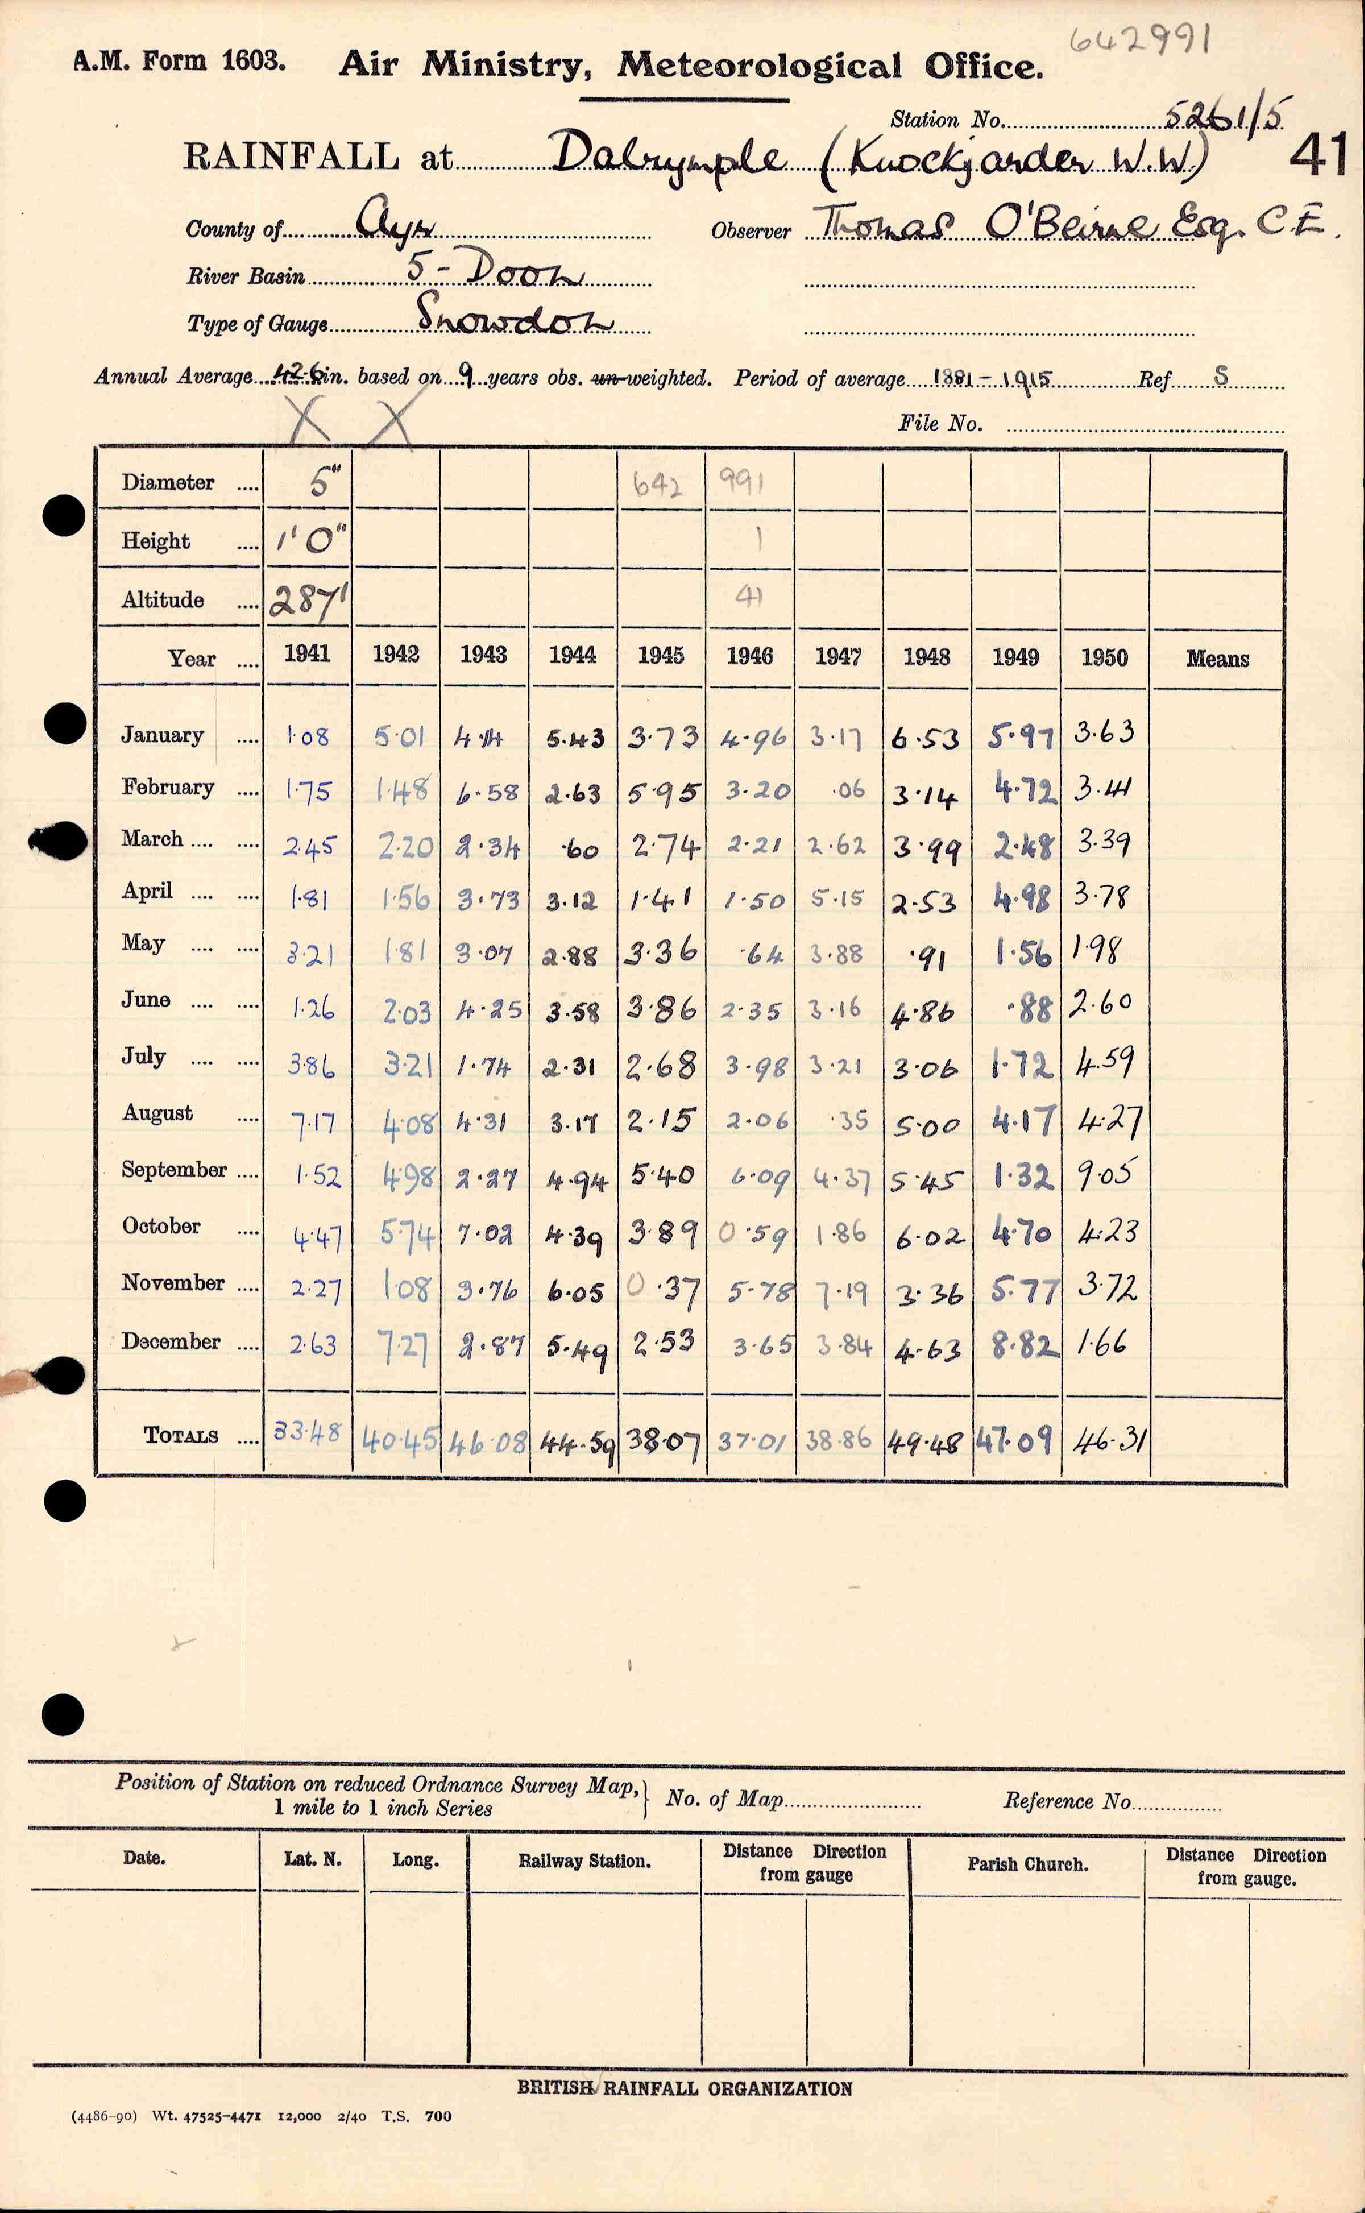 642991
A.M. Form 1603. Air Ministry, Meteorological Office.
Station No. 5261/5
RAINFALL at Dalrymple (Knockjarder W.W) 41
County of Ayr Observer Thomas O'Beirne Esq. C.E.
River Basin 5 - Doon
Type of Gauge Snowdon
Annual Average 42.6 in. based on 9 years obs. un-weighted. Period of average 1881 - 1915 Ref S
File No.
Diameter 5" 642 991
Height 1'0" 1
Altitude 287' 41
Year 1941 1942 1943 1944 1945 1946 1947 1948 1949 1950 Means
January 1.08 5.01 4.14 5.43 3.73 4.96 3.17 6.53 5.97 3.63
February 1.75 1.48 6.58 2.63 5.95 3.20 .06 3.14 4.72 3.41
March 2.45 2.20 2.34 .60 2.74 2.21 2.62 3.99 2.48 3.39
April 1.81 1.56 3.73 3.12 1.41 1.50 5.15 2.53 4.98 3.78
May 3.21 1.81 3.07 2.88 3.36 .64 3.88 .91 1.56 1.98
June 1.26 2.03 4.25 3.58 3.86 2.35 3.16 4.86 .88 2.60
July 3.86 3.21 1.74 2.31 2.68 3.98 3.21 3.06 1.72 4.59
August 7.17 4.08 4.31 3.17 2.15 2.06 .35 5.00 4.17 4.27
September 1.52 4.98 2.27 4.94 5.40 6.09 4.37 5.45 1.32 9.05
October 4.47 5.74 7.02 4.39 3.89 0.59 1.86 6.02 4.70 4.23
November 2.27 1.08 3.76 6.05 0.37 5.78 7.19 3.36 5.77 3.72
December 2.63 7.27 2.87 5.49 2.53 3.65 3.84 4.63 8.82 1.66
TOTALS 33.48 40.45 46.08 44.59 38.07 37.01 38.86 49.48 47.09 46.31
Position of Station on reduced Ordnance Survey Map,
1 mile to 1 inch Series
No. of Map Reference No.
Date. Lat. N. Long. Railway Station. Distance from gauge Direction Parish Church. Distance Direction from gauge.
BRITISH RAINFALL ORGANIZATION
(4486-90) Wt. 47525-4471 12,000 2/40 T.S. 700